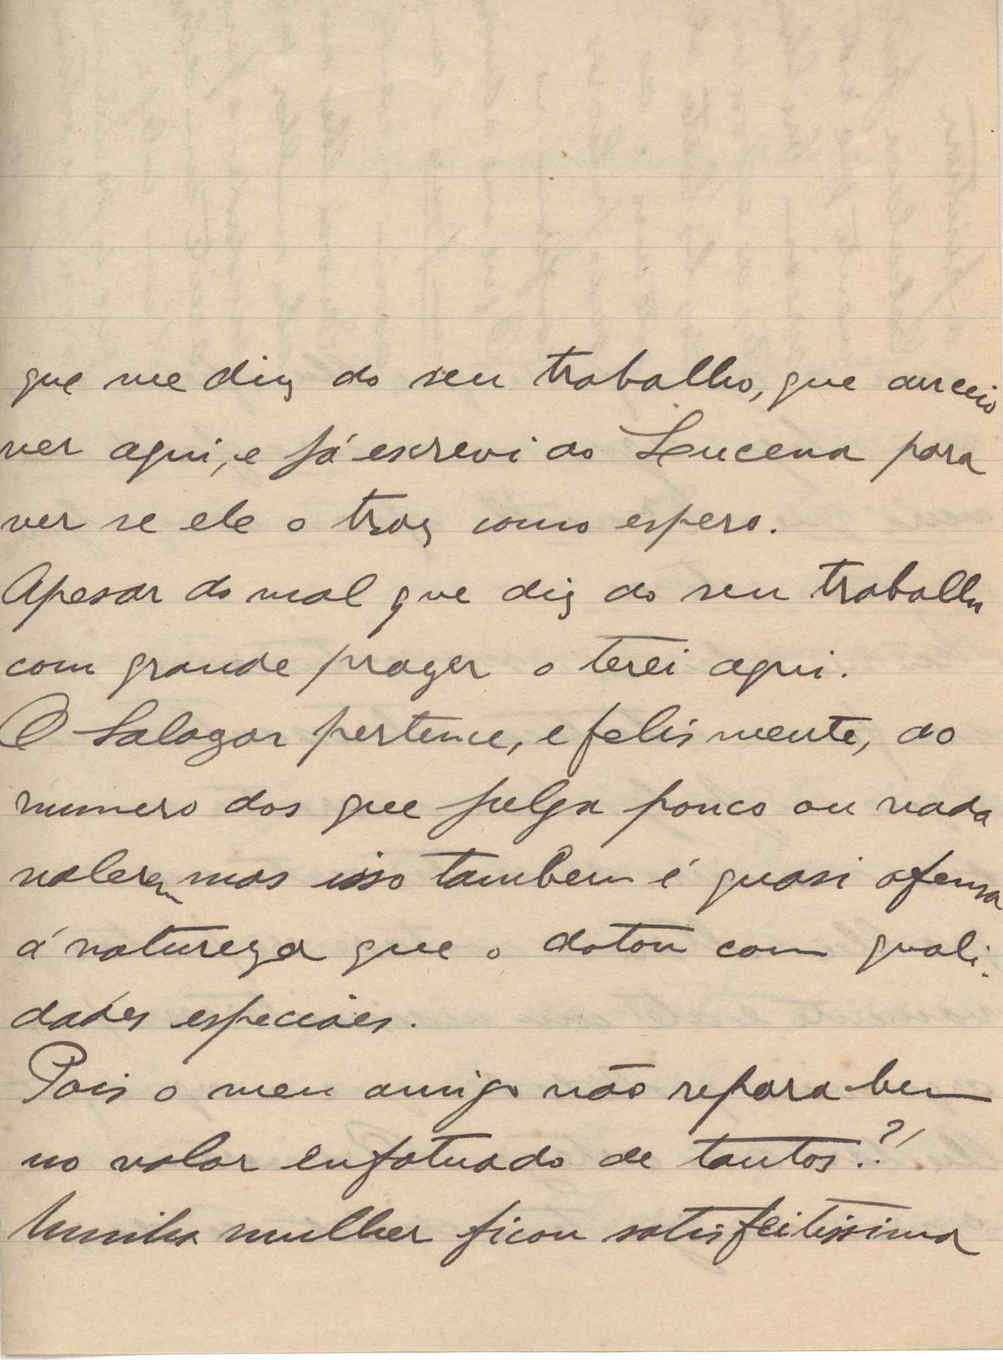 que me diz do seu trabalho, que anceio
ver aqui, e já escrevi ao Lucena para
ver se ele o traz como espero.
Apesar do mal que diz do seu trabalho
com grande prazer o terei aqui.
O Salazar pertence, e felismente, ao
numero dos que julga pouco ou nada
valerem mas isso tambem é quasi ofensa
á natureza que o dotou com quali-
dades especiáes.
Pois o meu amigo não repara bem
no valor enfatuado de tantos?!
Minha mulher ficou satisfeitissima